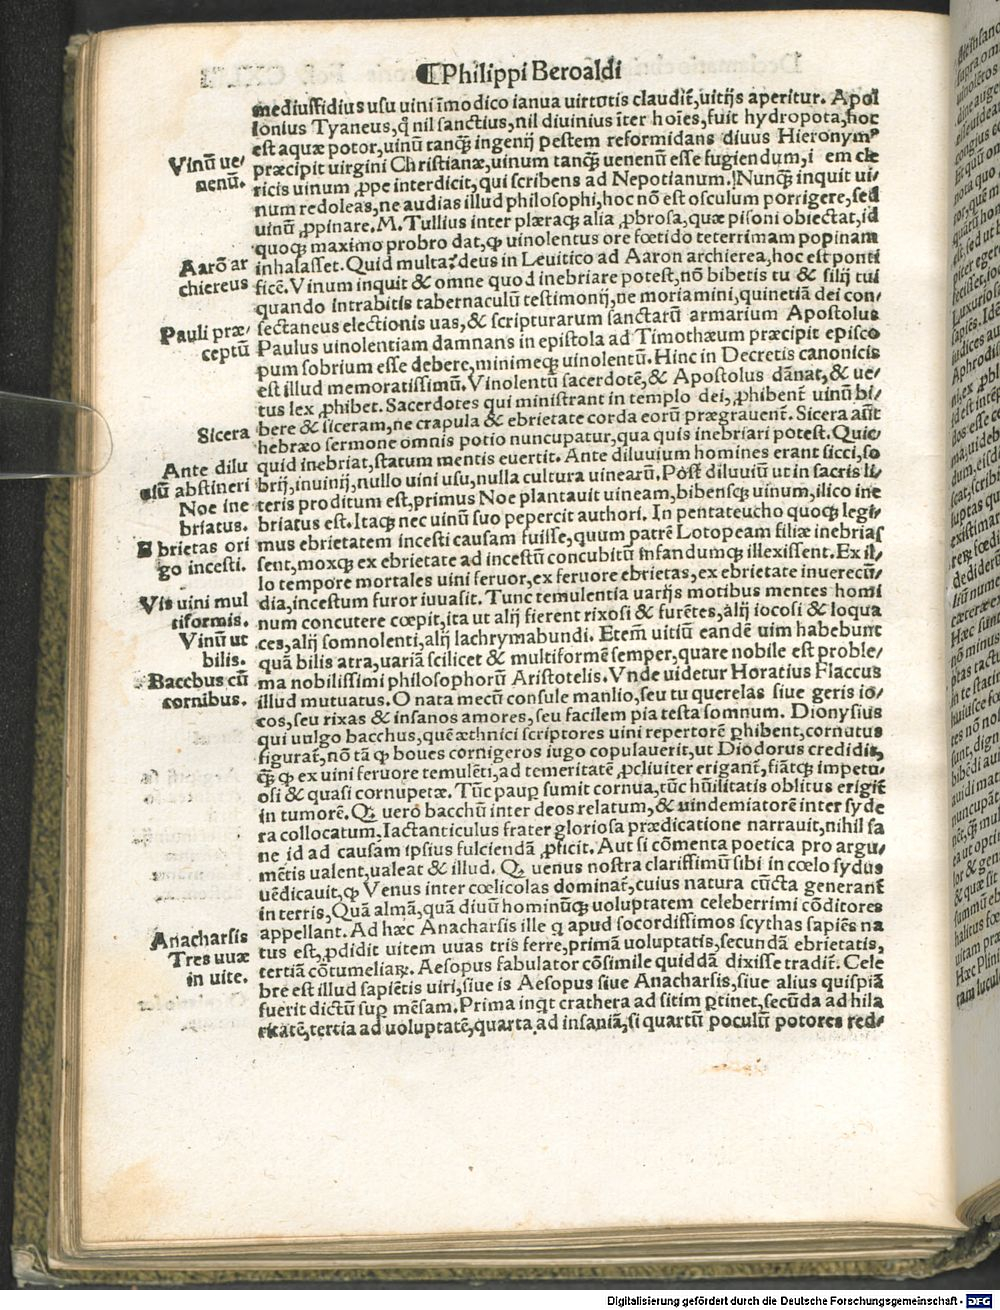 ❡Philippi Beroaldi
mediusfidius usu uini īmodico ianua uirtutis claudit̃, uitijs aperitur. Apol
lonius Tyaneus, q̃ nil sanctius, nil diuinius īter hoīes, fuit hydropota, hoc
est aquæ potor, uinũ tanq̃ ingenij pestem reformidans diuus Hieronymꝰ
Vinũ ue⸗
præcipit uirgini Christianæ, uinum tanq̃ uenenũ esse fugiendum, i em cle
nenũ.
ricis uinum ꝓpe interdicit, qui scribens ad Nepotianum. Nunq̃ inquit ui⸗
num redoleas, ne audias illud philosophi, hoc nõ est osculum porrigere, sed
uinũ ꝓpinare. M. Tullius inter plæraqꝫ alia ꝓbrosa, quæ pisoni obiectat, id
quoqꝫ maximo probro dat, ꝙ uinolentus ore fœtido teterrimam popinam
Aarõ ar
inhalasset. Quid multa? deus in Leuitico ad Aaron archierea, hoc est ponti
chiereus
ficē. Vinum inquit & omne quod inebriare potest, nõ bibetis tu & filij tui
quando intrabitis tabernaculũ testimonij, ne moriamini, quinetiã dei con⸗
Pauli præ⸗
sectaneus electionis uas, & scripturarum sanctarũ armarium Apostolus
ceptũ
Paulus uinolentiam damnans in epistola ad Timothæum præcipit episco
pum sobrium esse debere, minimeqꝫ uinolentũ. Hinc in Decretis canonicis
est illud memoratissimũ. Vinolentũ sacerdotē, & Apostolus dãnat, & ue⸗
tus lex ꝓhibet. Sacerdotes qui ministrant in templo dei, ꝓhibent̃ uinũ bi⸗
bere & siceram, ne crapula & ebrietate corda eorũ prægrauent̃. Sicera aũt
Sicera
hebræo sermone omnis potio nuncupatur, qua quis inebriari potest. Quic⸗
quid inebriat, statum mentis euertit. Ante diluuium homines erant sicci, so
Ante dilu
brij, inuinij, nullo uini usu, nulla cultura uinearũ. Post diluuiũ ut in sacris li⸗
uiũ abstineri
teris proditum est, primus Noe plantauit uineam, bibensqꝫ uinum, ilico ine
Noe ine
briatus est. Itaqꝫ nec uinũ suo pepercit authori. In pentateucho quoqꝫ legi⸗
briatus.
mus ebrietatem incesti causam fuisse, quum patrē Lotopeam filiæ inebrias
Ebrietas ori
sent, moxqꝫ ex ebrietate ad incestũ concubitũ īnfandumqꝫ illexissent. Ex il⸗
go incesti.
lo tempore mortales uini feruor, ex feruore ebrietas, ex ebrietate inuerecũ⸗
Vis uini mul
dia, incestum furor iuuasit. Tunc temulentia uarijs motibus mentes homi
tiformis.
num concutere cœpit, ita ut alij fierent rixosi & furētes, alij iocosi & loqua
Vinũ ut
ces, alij somnolenti, alij lachrymabundi. Etem̃ uitiũ eandē uim habebunt
bilis.
quã bilis atra, uariã scilicet & multiformē semper, quare nobile est proble⸗
Bacchus cũ
ma nobilissimi philosophorũ Aristotelis. Vnde uidetur Horatius Flaccus
cornibus.
illud mutuatus. O nata mecũ consule manlio, seu tu querelas siue geris io⸗
cos, seu rixas & insanos amores, seu facilem pia testa somnum. Dionysius
qui uulgo bacchus, quē æthnici scriptores uini repertorē ꝑhibent, cornutus
figurat̃, nõ tã ꝙ boues cornigeros iugo copulauerit, ut Diodorus credidit,
q̃ ꝙ ex uini feruore temulēti, ad temeritatē ꝓcliuiter erigant̃, fiãtqꝫ impetu⸗
osi & quasi cornupetæ. Tũc pauꝑ sumit cornua, tũc hũilitatis oblitus erigit̃
in tumorē. Qꝫ uero bacchũ inter deos relatum, & uindemiatorē inter syde
ra collocatum. Iactanticulus frater gloriosa prædicatione narrauit, nihil sa
ne id ad causam ipsius fulciendã ꝓficit. Aut si cõmenta poetica pro argu⸗
mētis ualent, ualeat & illud. Qꝫ uenus nostra clarissimũ sibi in cœlo sydus
uēdicauit, ꝙ Venus inter cœlicolas dominat̃, cuius natura cũcta generant̃
in terris, Quã almã, quã diuũ hominũqꝫ uoluptatem celeberrimi cõditores
Anacharsis
appellant. Ad hæc Anacharsis ille q apud socordissimos scythas sapiēs na
Tres uuæ
tus est, ꝓdidit uitem uuas tris ferre, primã uoluptatis, secundã ebrietatis,
in uite.
tertiã cõtumeliaꝝ. Aesopus fabulator cõsimile quiddã dixisse tradit̃. Cele
bre est illud sapiētis uiri, siue is Aesopus siue Anacharsis, siue alius quispiã
fuerit dictũ suꝑ mēsam. Prima inqt crathera ad sitim ꝑtinet, secũda ad hila
ritatē, tertia ad uoluptatē, quarta ad insaniã, si quartũ poculũ potores red⸗
Digitalisierung gefördert durch die Deutsche Forschungsgemeinschaft - DFG